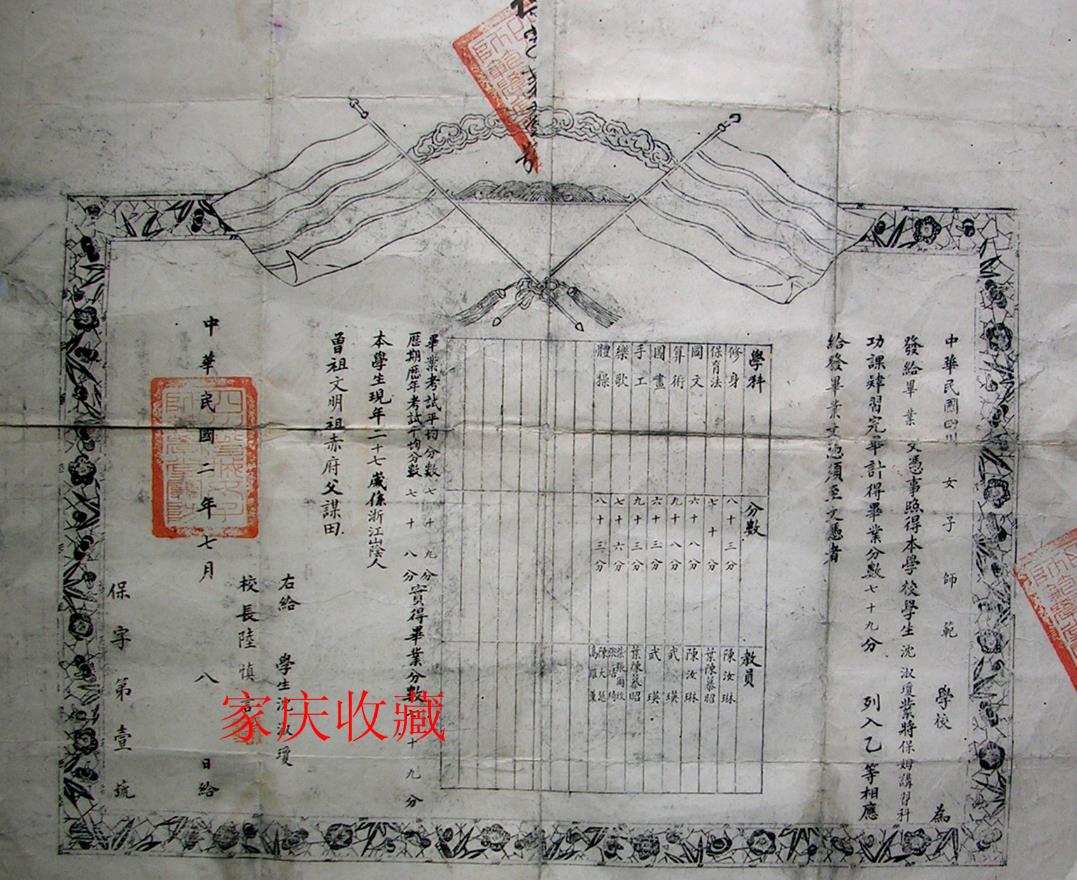 中華民國四川女子師範學校為
發給畢業文憑事照得本學校學生沈淑瓊業將保姆講習科
功課肄習完畢計得畢業分數七十九分列入乙等相應
給發畢業文憑須至文憑者
學科 分數 教員
修身 八十三分 陳汝琳
保育法 七十分 葉陳慕昭
國文 六十八分 陳汝琳
算術 九十八分 武瑛
圖畫 六十三分 武瑛
手工 九十三分 葉陳慕昭
樂歌 七十六分
體操 八十三分
畢業考試平均分數七十九分
歷期歷年考試平均分數七十八分
實得畢業分數七十九分
本學生現年二十七歲係浙江山陰人
曾祖文明祖赤府父謀田
右給學生沈淑瓊
校長陸慎言
中華民國二年七月八日給
保字第壹號
家庆收藏